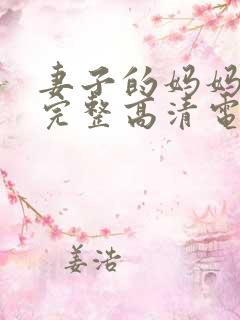 妻子的妈妈
完整高清电
姜浩